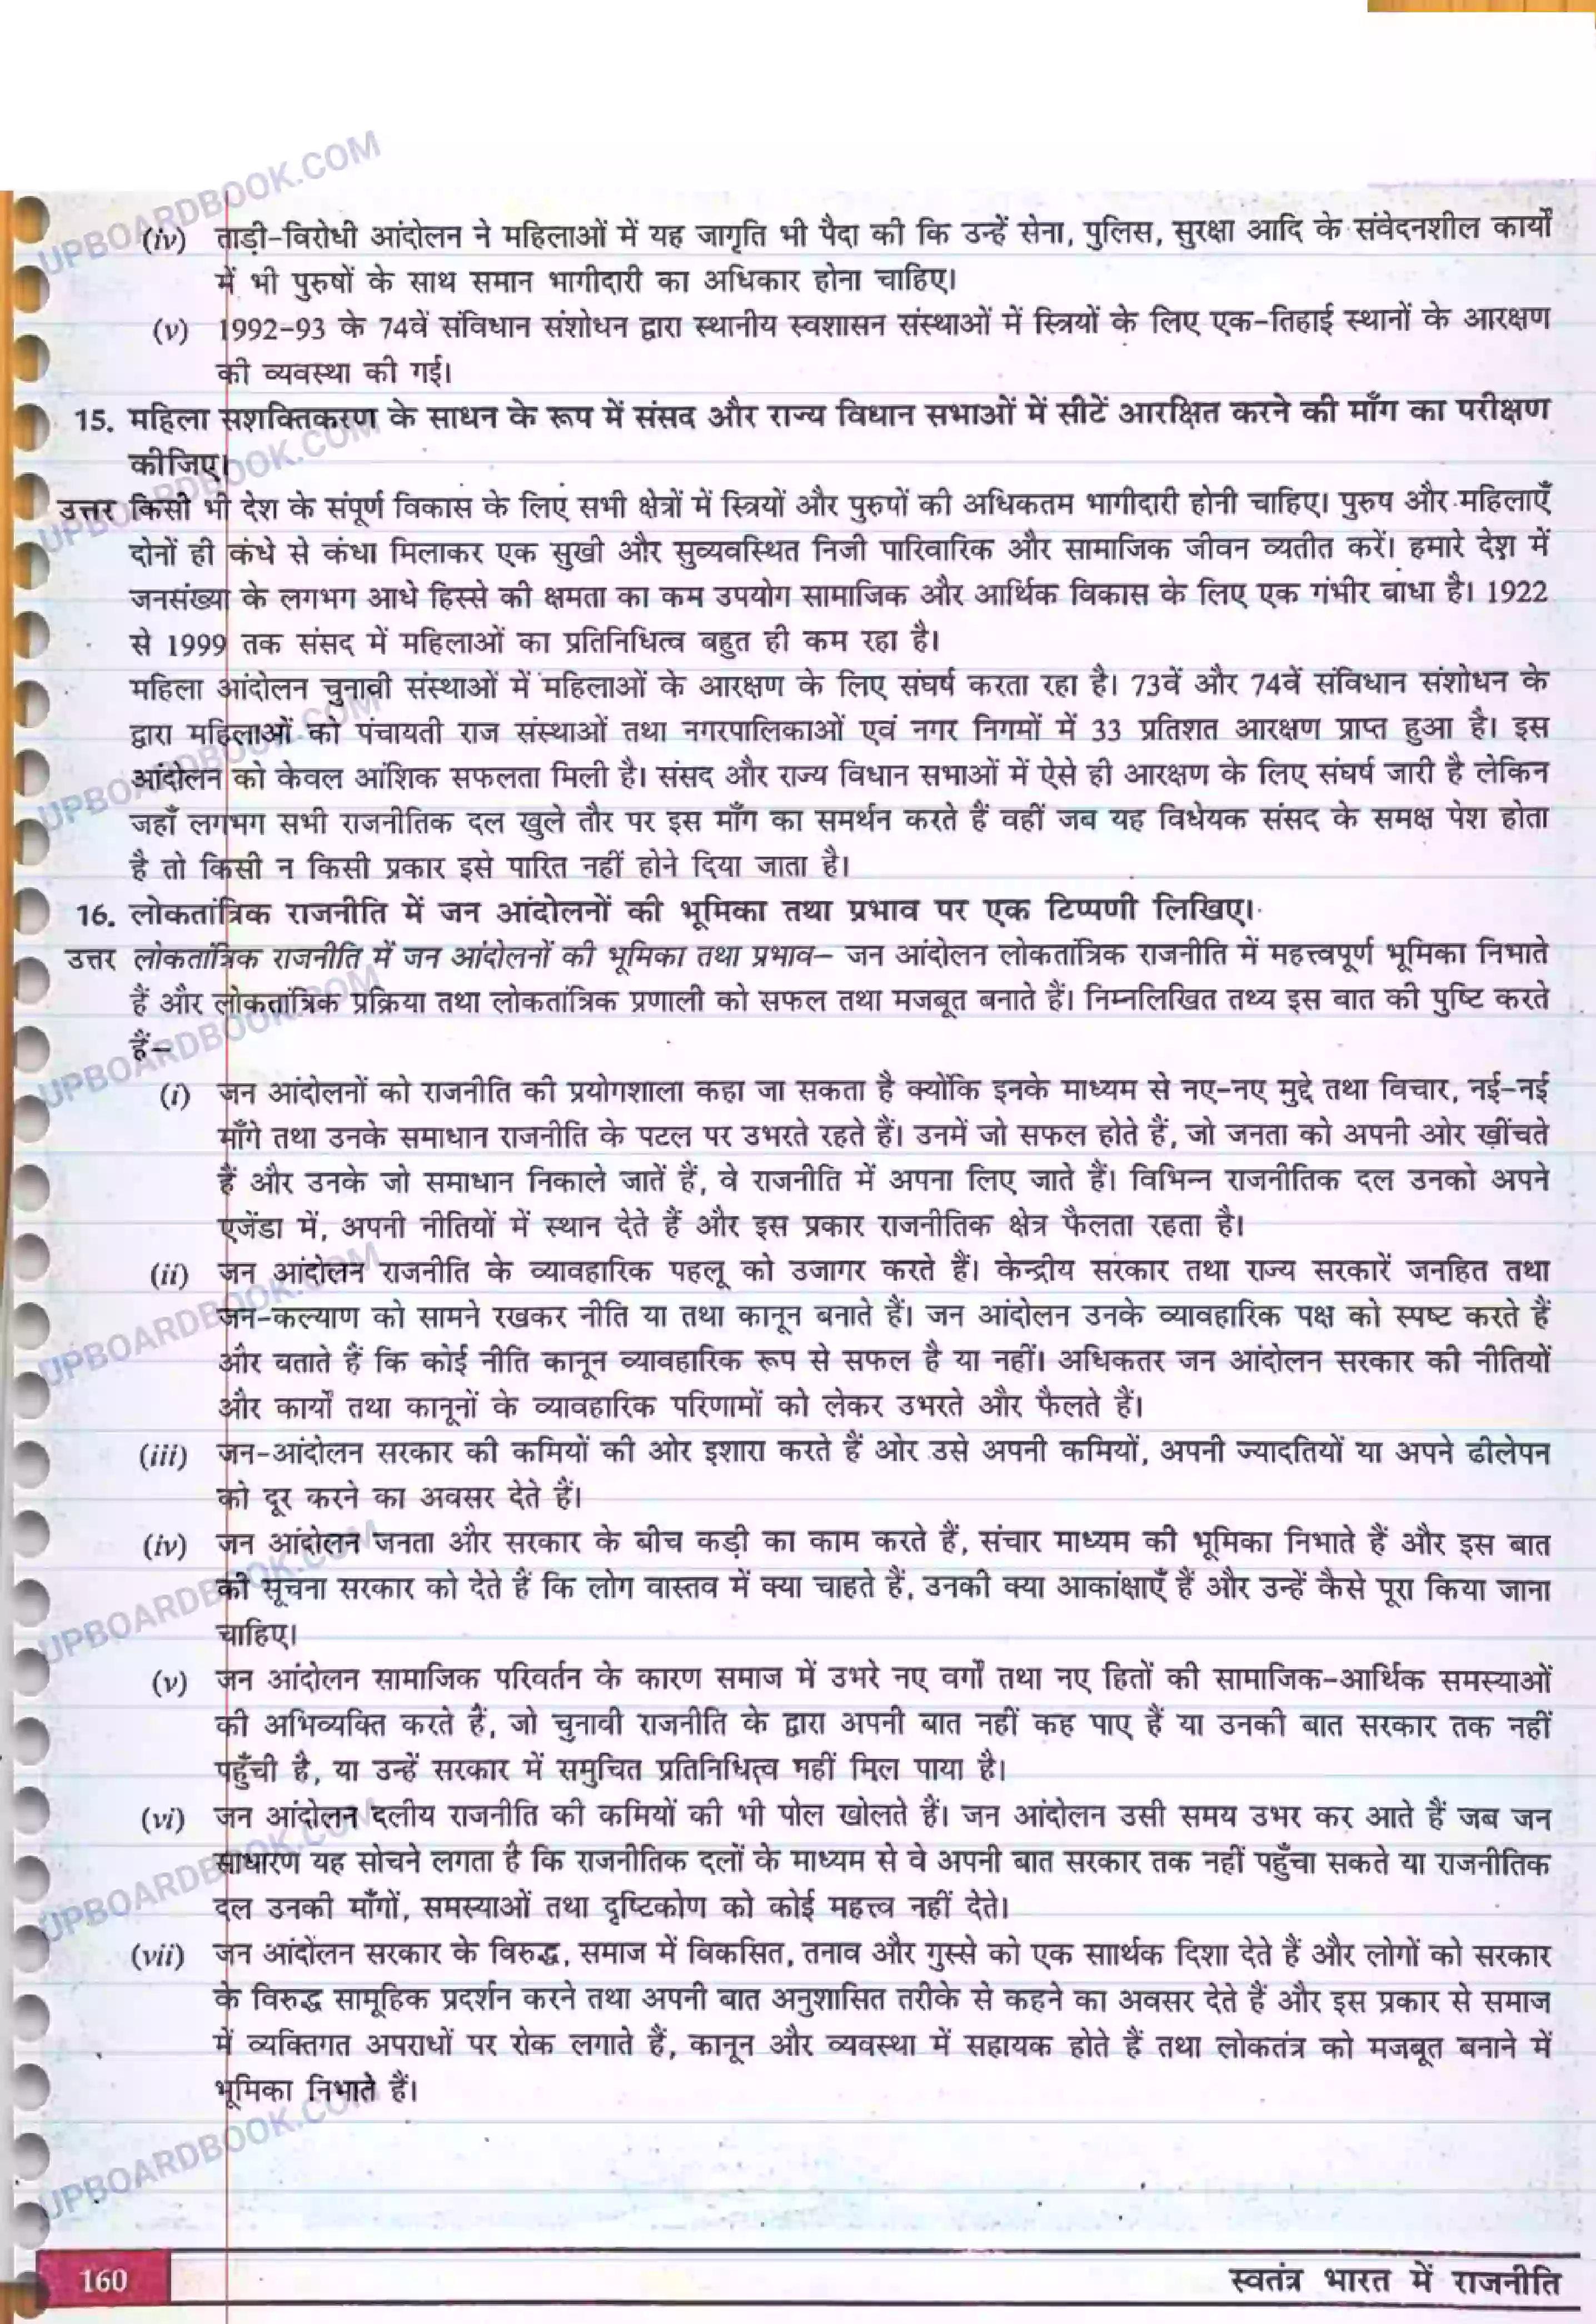 (iv) ताड़ी-विरोधी आंदोलन ने महिलाओं में यह जागृति भी पैदा की कि उन्हें सेना, पुलिस, सुरक्षा आदि के संवेदनशील कार्यों
में भी पुरुषों के साथ समान भागीदारी का अधिकार होना चाहिए।
(v) 1992-93 के 74वें संविधान संशोधन द्वारा स्थानीय स्वशासन संस्थाओं में स्त्रियों के लिए एक-तिहाई स्थानों के आरक्षण
की व्यवस्था की गई।
15. महिला सशक्तिकरण के साधन के रूप में संसद और राज्य विधान सभाओं में सीटें आरक्षित करने की माँग का परीक्षण
कीजिए।
उत्तर किसी भी देश के संपूर्ण विकास के लिए सभी क्षेत्रों में स्त्रियों और पुरुषों की अधिकतम भागीदारी होनी चाहिए। पुरुष और महिलाएँ
दोनों ही कंधे से कंधा मिलाकर एक सुखी और सुव्यवस्थित निजी पारिवारिक और सामाजिक जीवन व्यतीत करें। हमारे देश में
जनसंख्या के लगभग आधे हिस्से की क्षमता का कम उपयोग सामाजिक और आर्थिक विकास के लिए एक गंभीर बाधा है। 1922
से 1999 तक संसद में महिलाओं का प्रतिनिधित्व बहुत ही कम रहा है।
महिला आंदोलन चुनावी संस्थाओं में महिलाओं के आरक्षण के लिए संघर्ष करता रहा है। 73वें और 74वें संविधान संशोधन के
द्वारा महिलाओं को पंचायती राज संस्थाओं तथा नगरपालिकाओं एवं नगर निगमों में 33 प्रतिशत आरक्षण प्राप्त हुआ है। इस
आंदोलन को केवल आंशिक सफलता मिली है। संसद और राज्य विधान सभाओं में ऐसे ही आरक्षण के लिए संघर्ष जारी है लेकिन
जहाँ लगभग सभी राजनीतिक दल खुले तौर पर इस माँग का समर्थन करते हैं वहीं जब यह विधेयक संसद के समक्ष पेश होता
है तो किसी न किसी प्रकार इसे पारित नहीं होने दिया जाता है।
16. लोकतांत्रिक राजनीति में जन आंदोलनों की भूमिका तथा प्रभाव पर एक टिप्पणी लिखिए।
उत्तर लोकतांत्रिक राजनीति में जन आंदोलनों की भूमिका तथा प्रभाव– जन आंदोलन लोकतांत्रिक राजनीति में महत्त्वपूर्ण भूमिका निभाते
हैं और लोकतांत्रिक प्रक्रिया तथा लोकतांत्रिक प्रणाली को सफल तथा मजबूत बनाते हैं। निम्नलिखित तथ्य इस बात की पुष्टि करते
हैं–
(i) जन आंदोलनों को राजनीति की प्रयोगशाला कहा जा सकता है क्योंकि इनके माध्यम से नए-नए मुद्दे तथा विचार, नई-नई
माँगे तथा उनके समाधान राजनीति के पटल पर उभरते रहते हैं। उनमें जो सफल होते हैं, जो जनता को अपनी ओर खींचते
हैं और उनके जो समाधान निकाले जातें हैं, वे राजनीति में अपना लिए जाते हैं। विभिन्न राजनीतिक दल उनको अपने
एजेंडा में, अपनी नीतियों में स्थान देते हैं और इस प्रकार राजनीतिक क्षेत्र फैलता रहता है।
(ii) जन आंदोलन राजनीति के व्यावहारिक पहलू को उजागर करते हैं। केन्द्रीय सरकार तथा राज्य सरकारें जनहित तथा
जन-कल्याण को सामने रखकर नीति या तथा कानून बनाते हैं। जन आंदोलन उनके व्यावहारिक पक्ष को स्पष्ट करते हैं
और बताते हैं कि कोई नीति कानून व्यावहारिक रूप से सफल है या नहीं। अधिकतर जन आंदोलन सरकार की नीतियों
और कार्यों तथा कानूनों के व्यावहारिक परिणामों को लेकर उभरते और फैलते हैं।
(iii) जन-आंदोलन सरकार की कमियों की ओर इशारा करते हैं ओर उसे अपनी कमियों, अपनी ज्यादतियों या अपने ढीलेपन
को दूर करने का अवसर देते हैं।
(iv) जन आंदोलन जनता और सरकार के बीच कड़ी का काम करते हैं, संचार माध्यम की भूमिका निभाते हैं और इस बात
की सूचना सरकार को देते हैं कि लोग वास्तव में क्या चाहते हैं, उनकी क्या आकांक्षाएँ हैं और उन्हें कैसे पूरा किया जाना
चाहिए।
(v) जन आंदोलन सामाजिक परिवर्तन के कारण समाज में उभरे नए वर्गों तथा नए हितों की सामाजिक-आर्थिक समस्याओं
की अभिव्यक्ति करते हैं, जो चुनावी राजनीति के द्वारा अपनी बात नहीं कह पाए हैं या उनकी बात सरकार तक नहीं
पहुँची है, या उन्हें सरकार में समुचित प्रतिनिधित्व नहीं मिल पाया है।
(vi) जन आंदोलन दलीय राजनीति की कमियों की भी पोल खोलते हैं। जन आंदोलन उसी समय उभर कर आते हैं जब जन
साधारण यह सोचने लगता है कि राजनीतिक दलों के माध्यम से वे अपनी बात सरकार तक नहीं पहुँचा सकते या राजनीतिक
दल उनकी माँगों, समस्याओं तथा दृष्टिकोण को कोई महत्त्व नहीं देते।
(vii) जन आंदोलन सरकार के विरुद्ध, समाज में विकसित, तनाव और गुस्से को एक सार्थक दिशा देते हैं और लोगों को सरकार
के विरुद्ध सामूहिक प्रदर्शन करने तथा अपनी बात अनुशासित तरीके से कहने का अवसर देते हैं और इस प्रकार से समाज
में व्यक्तिगत अपराधों पर रोक लगाते हैं, कानून और व्यवस्था में सहायक होते हैं तथा लोकतंत्र को मजबूत बनाने में
भूमिका निभाते हैं।
160
स्वतंत्र भारत में राजनीति
UPBOARDBOOK.COM
UPBOARDBOOK.COM
UPBOARDBOOK.COM
UPBOARDBOOK.COM
UPBOARDBOOK.COM
UPBOARDBOOK.COM
UPBOARDBOOK.COM
UPBOARDBOOK.COM